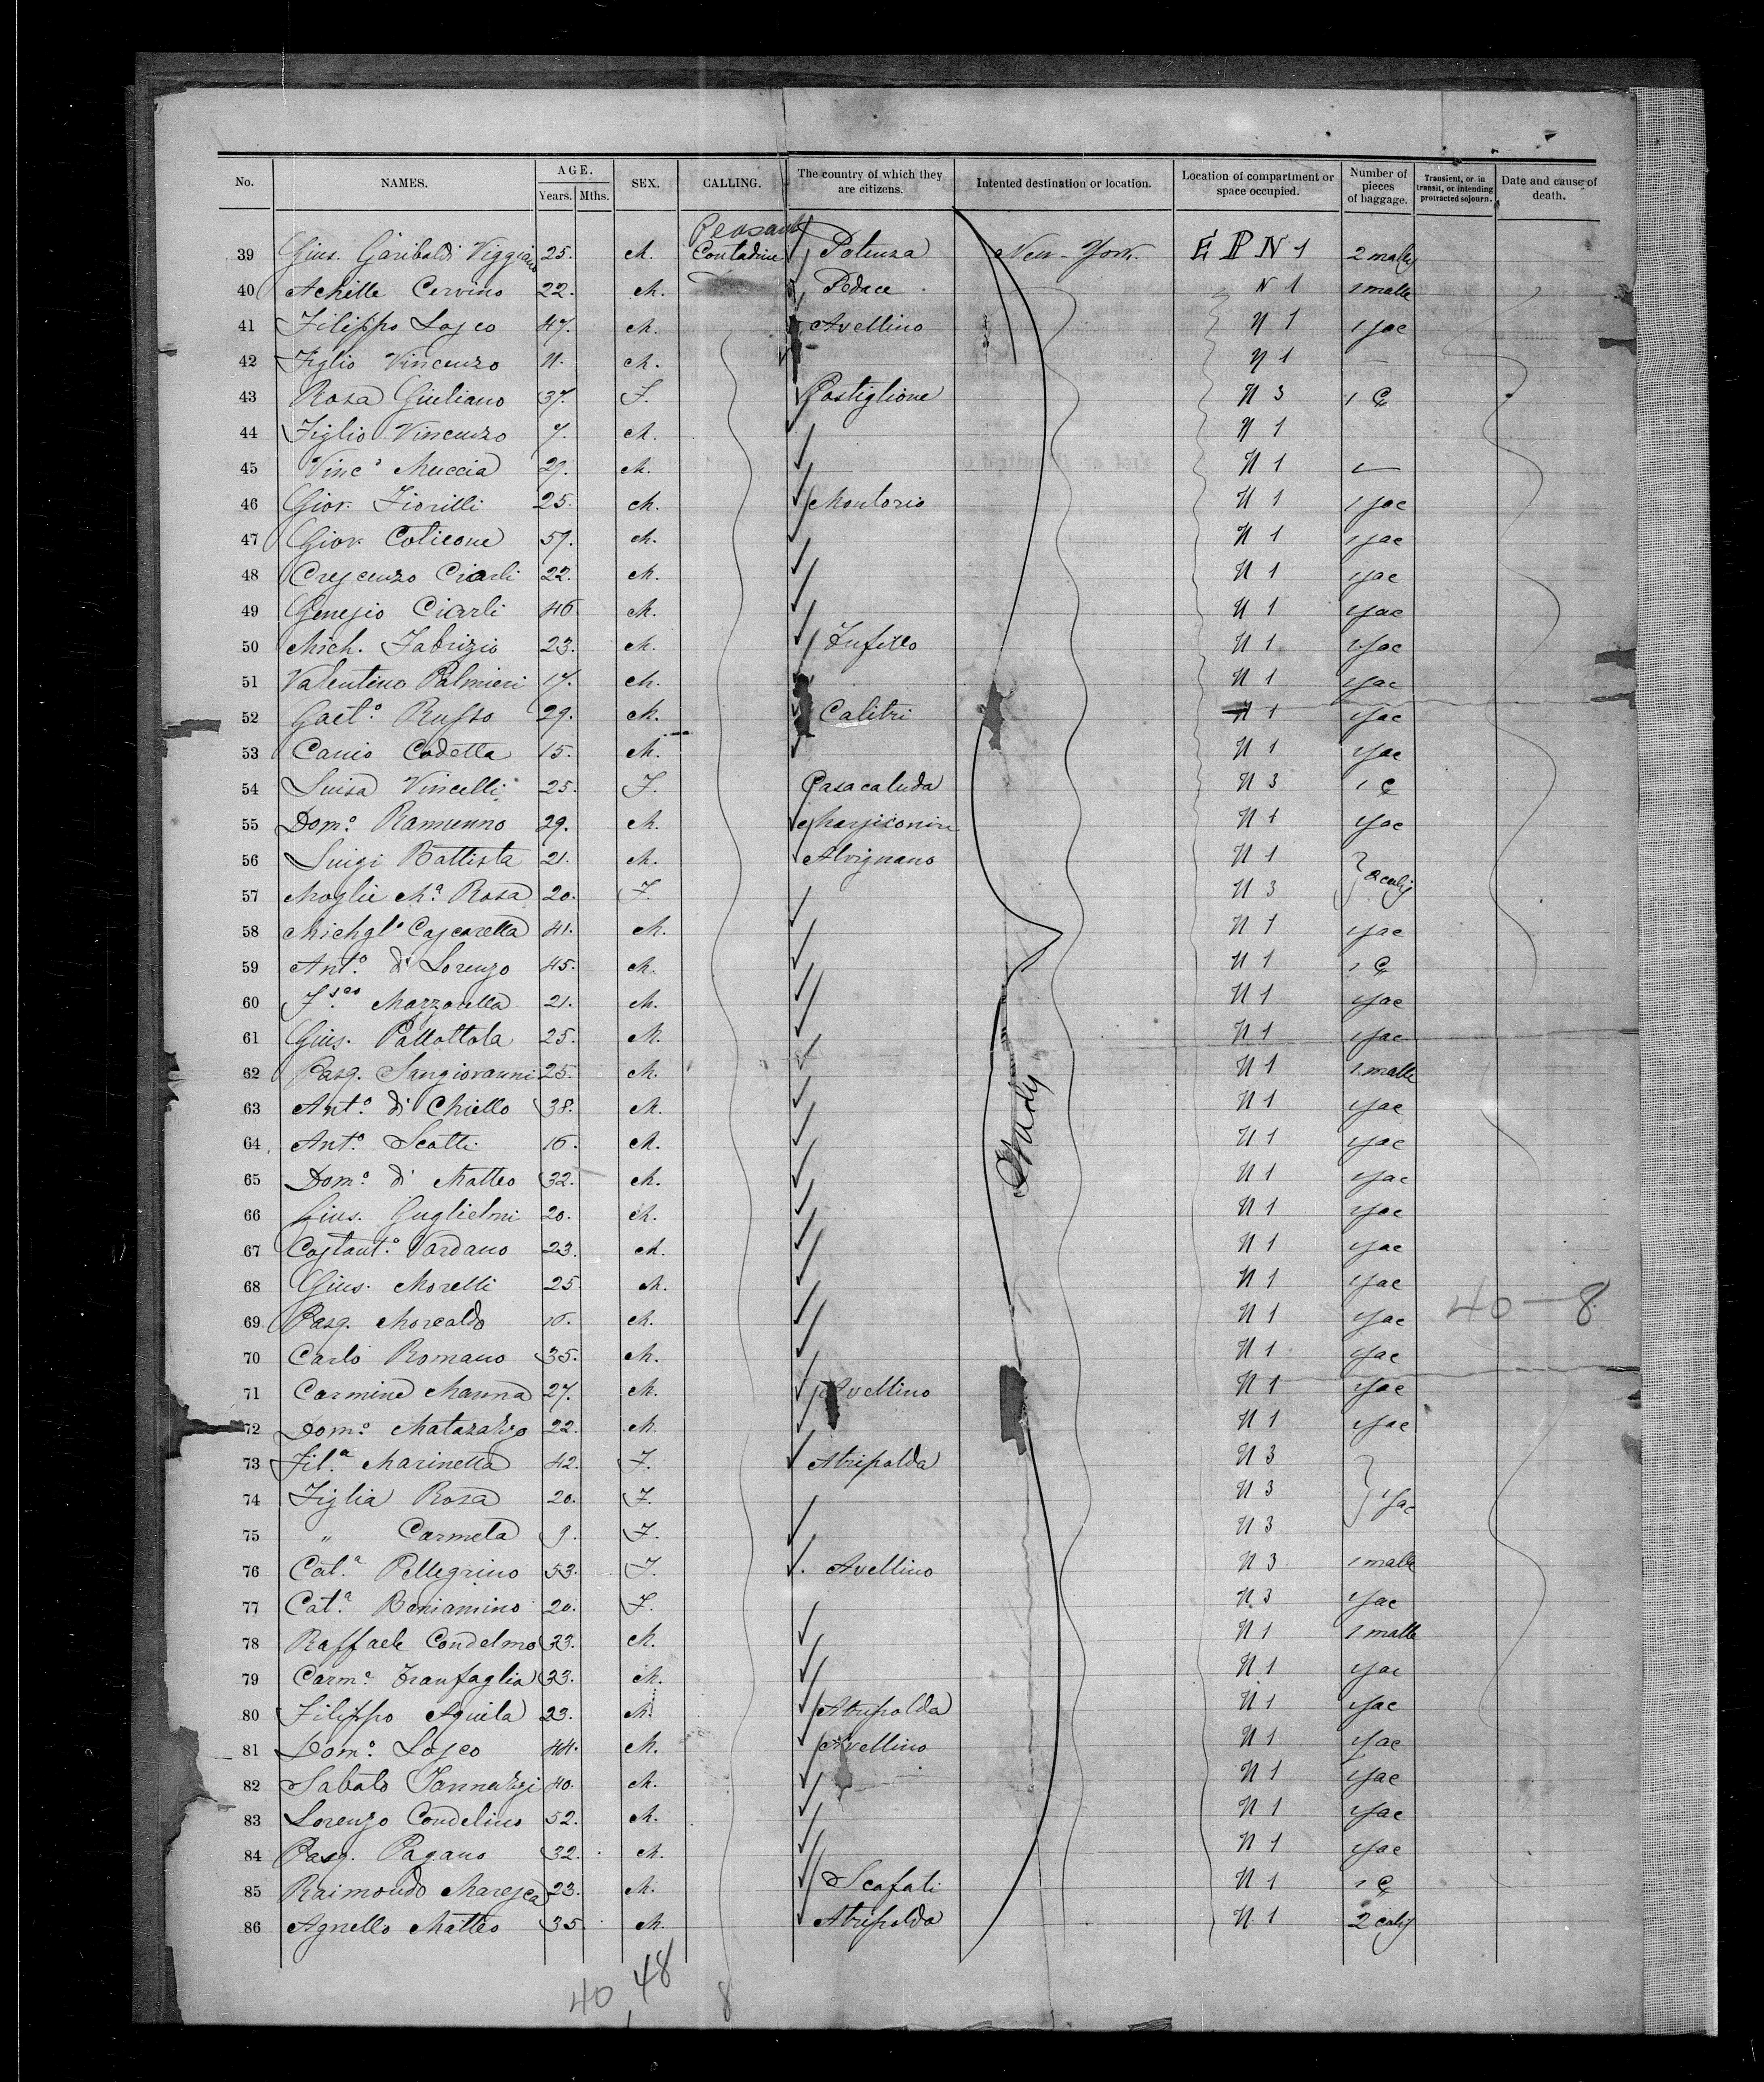 No. NAMES. AGE. Years. Mths. SEX. CALLING. The country of which they are citizens. Intented destination or location. Location of compartment or space occupied. Number of pieces of baggage. Transient, or in transit, or intending protracted sojourn. Date and cause of death.
Peasant
39 Gius. Garibaldi Viggiano 25. M. Contadine Potenza New-York. E P N 1 2 malles
40 Achille Cervino 22. M. Pedace N 1 1 malle
41 Filippo Losco 47. M. Avellino N 1 1 sac
42 Figlio Vincenzo 11. M. N 1 —
43 Rosa Giuliano 37. F. Postiglione N 3 1 C
44 Figlio Vincenzo 7. M. N 1
45 Vinc.o Muccia 29. M. N 1 —
46 Giov. Fiorilli 25. M. Montorio N 1 1 sac
47 Giov. Colicone 57. M. N 1 1 sac
48 Crescenzo Ciarli 22. M. N 1 1 sac
49 Genesio Ciarli 46 M. N 1 1 sac
50 Mich. Fabrizio 23. M. N 1 1 sac
51 Valentino Palmieri 17. M. N 1 1 sac
52 Gaet.o Russo 29. M. Calitri N 1 1 sac
53 Canio Codella 15. M. N 1 1 sac
54 Luisa Vincelli 25. F. Casacaluda N 3 1 C
55 Dom.o Ramunno 29. M. N 1 1 sac
56 Luigi Battista 21. M. Alvignano N 1 2 calis
57 Moglie M.a Rosa 20. F. N 3
58 Michel.o Cascarella 41. M. N 1 1 sac
59 Ant.o di Lorenzo 45. M. N 1 1 C
60 F.sco Mazzarella 21. M. N 1 1 sac
61 Gius. Pallottola 25. M. N 1 1 sac
62 Pasq. Sangiovanni 25. M. N 1 1 malle
63 Ant.o di Chiello 38. M. N 1 1 sac
64 Ant.o Scotti 16. M. N 1 1 sac
65 Dom.o di Matteo 32. M. N 1 1 sac
66 Gius. Guglielmi 20. M. N 1 1 sac
67 Costant.o Vardano 23. M. N 1 1 sac
68 Gius. Morelli 25 M. N 1 1 sac
69 Pasq. Morcaldo M. N 1 1 sac 40 — 8
70 Carlo Romano 35. M. N 1 1 sac
71 Carmine Manna 27. M. Avellino N 1 1 sac
72 Dom.o Matarazzo 22. M. N 1 1 sac
73 Fil.a Marinella 42. F. Atripalda N 3
74 Figlia Rosa 20. F. N 3 1 sac
75 " Carmela 9. F. N 3
76 Cat.a Pellegrino 53. F. Avellino N 3 1 malle
77 Cat.a Beniamino 20. F. N 3 1 sac
78 Raffaele Condelmo 33. M. N 1 1 malle
79 Carm.e Tranfaglia 33. M. N 1 1 sac
80 Filippo Aquila 23. M. Atripalda N 1 1 sac
81 Dom.o Losco 44. M. Avellino N 1 1 sac
82 Sabato Iannuzzi 40. M. N 1 1 sac
83 Lorenzo Condelmo 52. M. N 1 1 sac
84 Pasq. Pagano 32. M. N 1 1 sac
85 Raimondo Maresca 23. M. Scafati N 1 1 C
86 Agnello Matteo 35 M. Atripalda N 1 2 calis
40 48 8